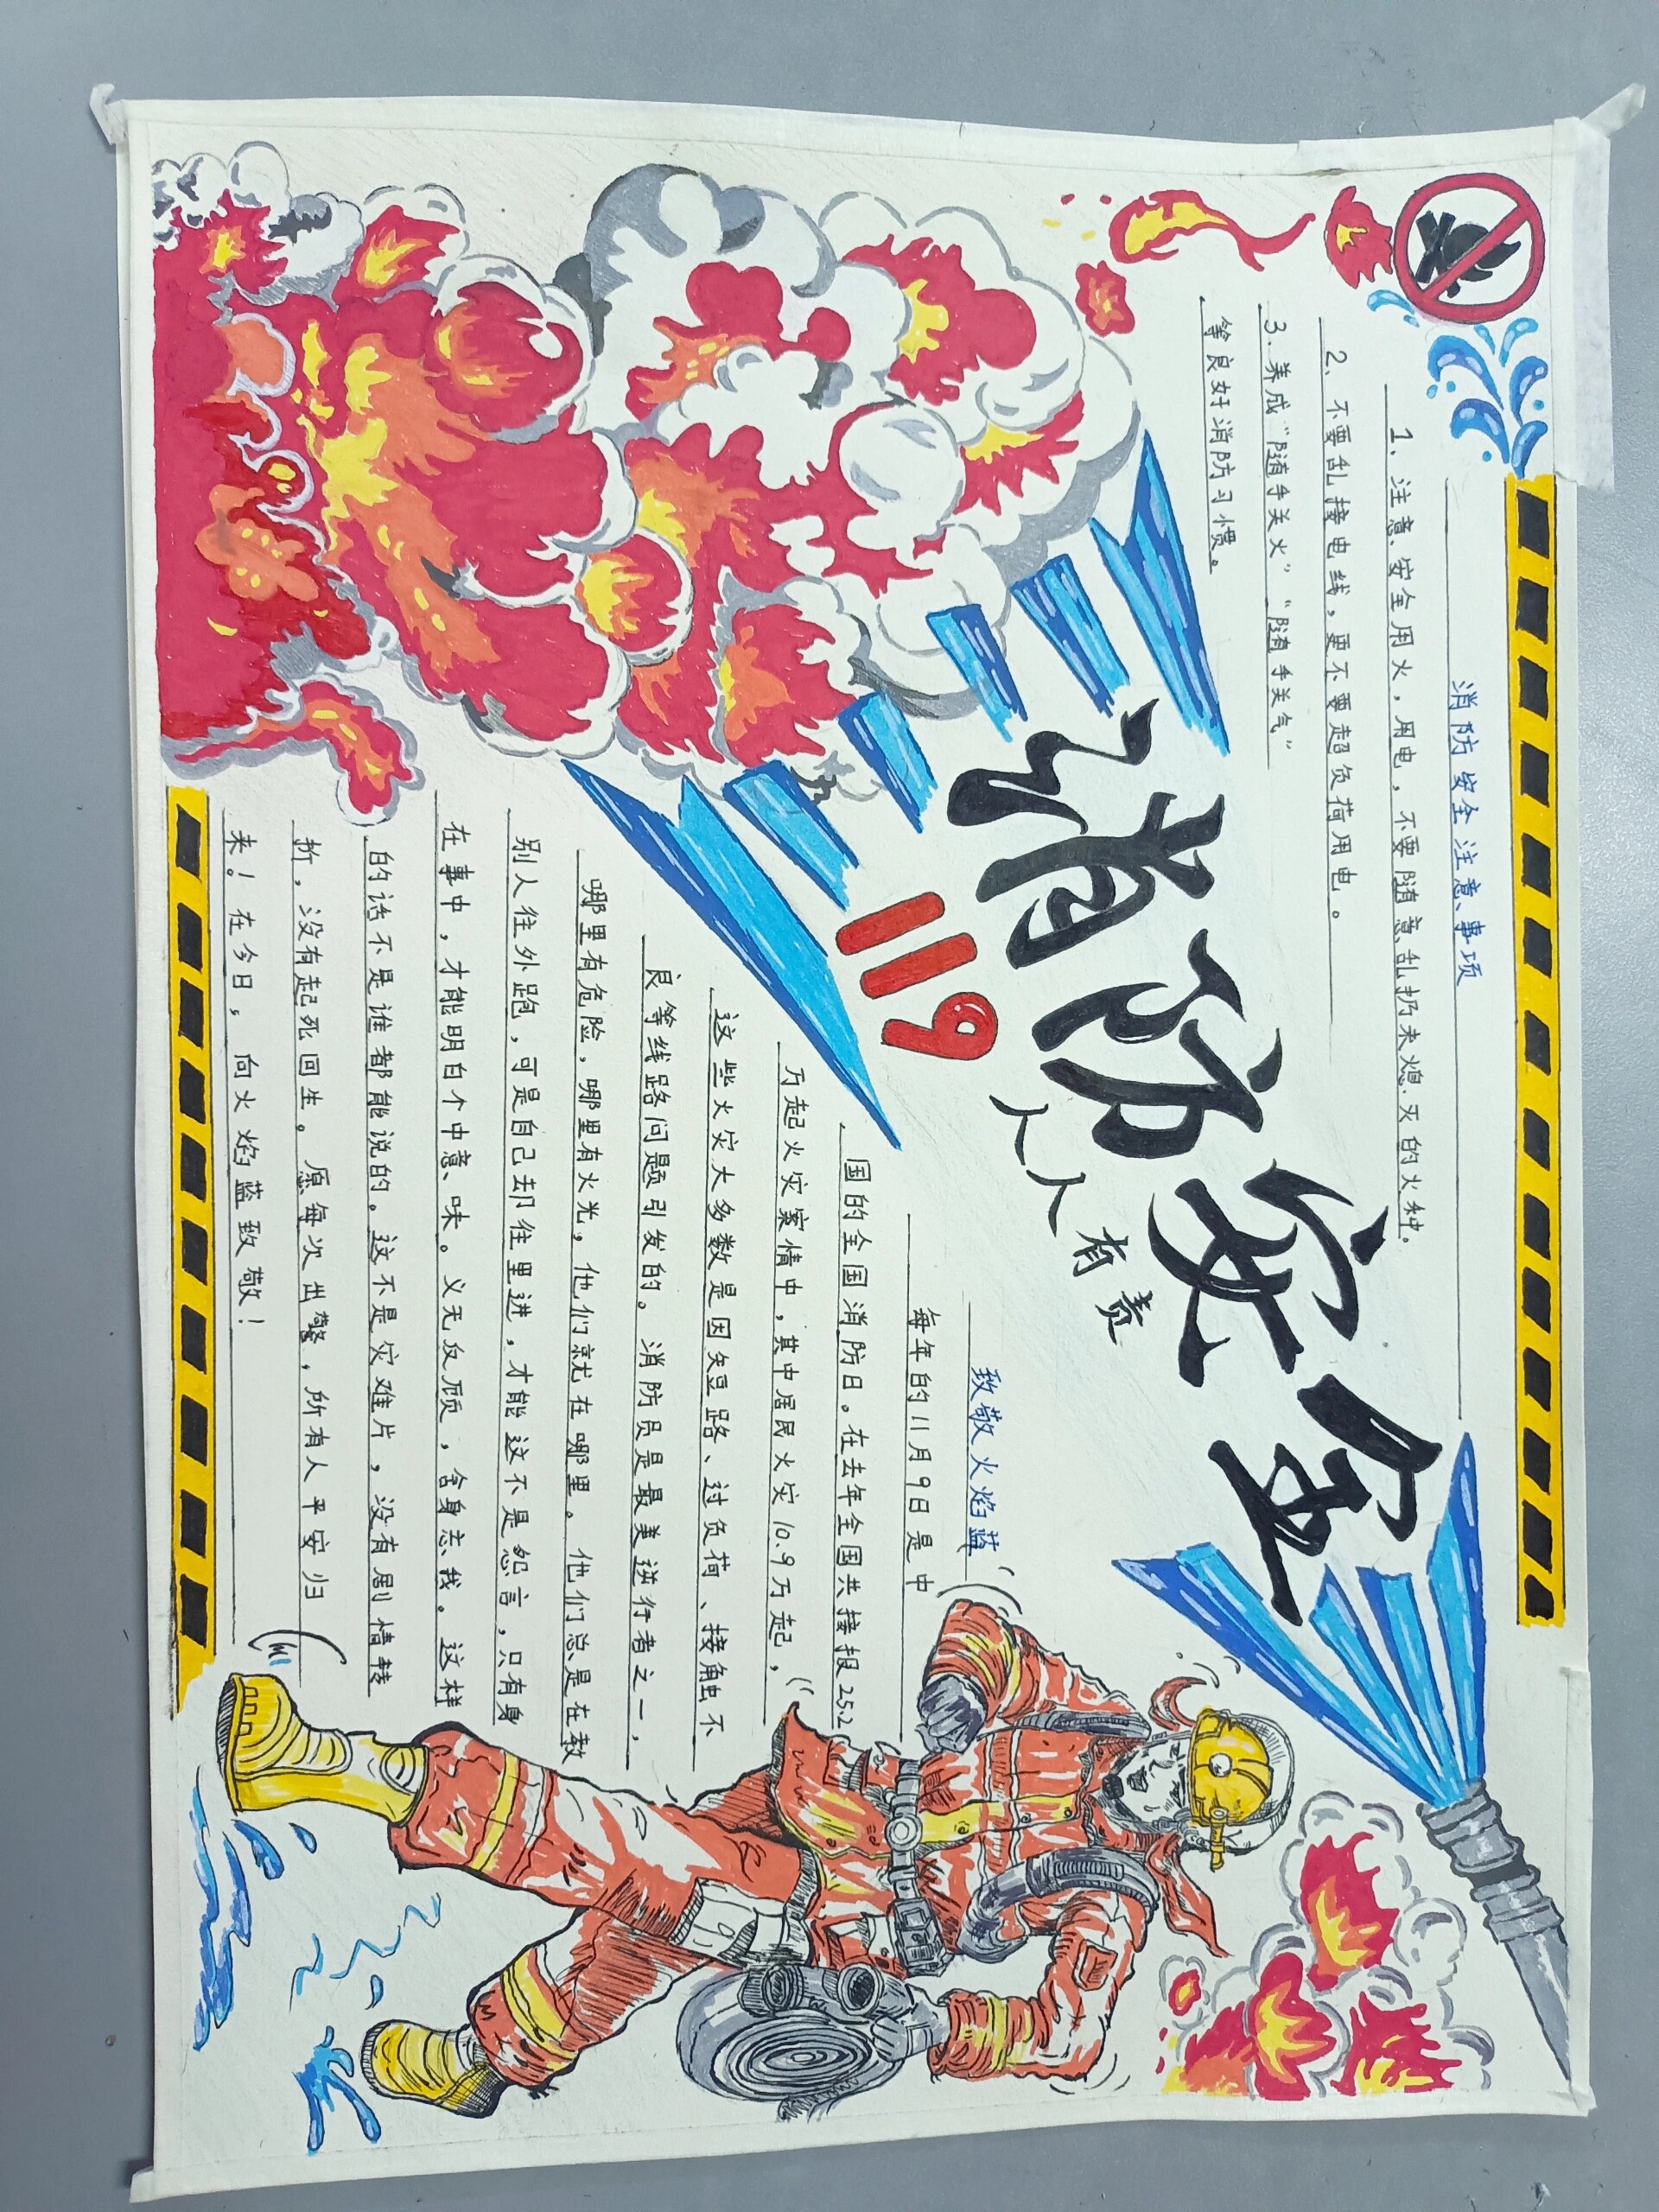 消防安全注意事项
1、注意安全用火，用电，不要随意乱扔未熄灭的火种。
2、不要乱接电线，更不要超负荷用电。
3、养成“随手关火”“随手关气”
等良好消防习惯。
消防安全
119
人人有责
致敬火焰蓝
每年的11月9日是中
国的全国消防日。在去年全国共接报25.2
万起火灾案情中，其中居民火灾10.9万起，
这些火灾大多数是因短路、过负荷、接触不
良等线路问题引发的。消防员是最美逆行者之一，
哪里有危险，哪里有火光，他们就在哪里。他们总是在救
别人往外跑，可是自己却往里进，才能这不是怨言，只有身
在事中，才能明白个中意味。义无反顾，舍身忘我。这样
的话不是谁都能说的。这不是灾难片，没有剧情转
折，没有起死回生。愿每次出警，所有人平安归
来！在今日，向火焰蓝致敬！